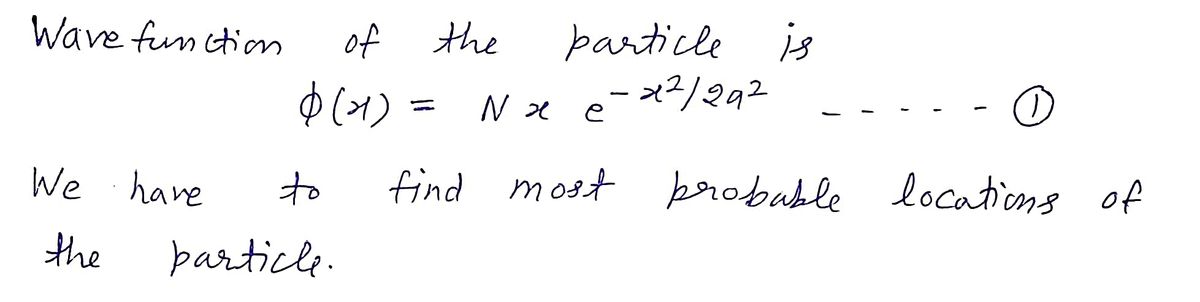 Wave function of the particle is
ϕ(x) = N x e^{-x²/2a²} - - - - - ①
We have to find most probable locations of
the particle.